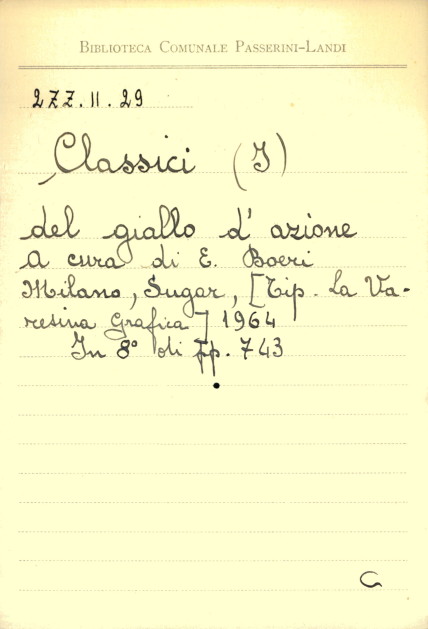 BIBLIOTECA COMUNALE PASSERINI-LANDI
2ZZ.II.29
Classici (I)
del giallo d'azione
a cura di E. Boeri
Milano, Sugar, [Tip. La Va-
resina Grafica] 1964
In 8° di pp. 743
G